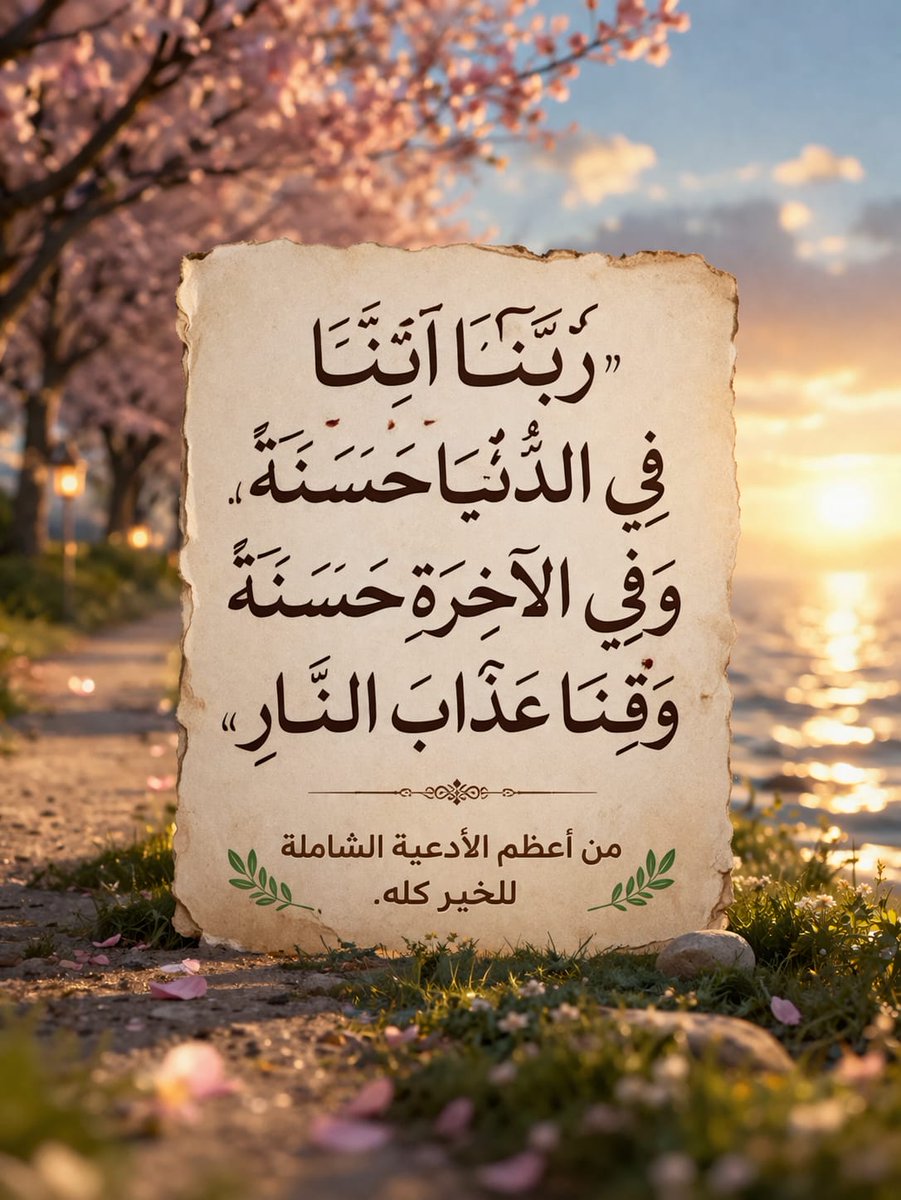 ”رَبَّنَا آتِنَّا
فِي الدُّنْيَا حَسَنَةً،
وَفِي الآخِرَةِ حَسَنَةً
وَقِنَا عَذَابَ النَّارِ“
من أعظم الأدعية الشاملة
للخير كله.